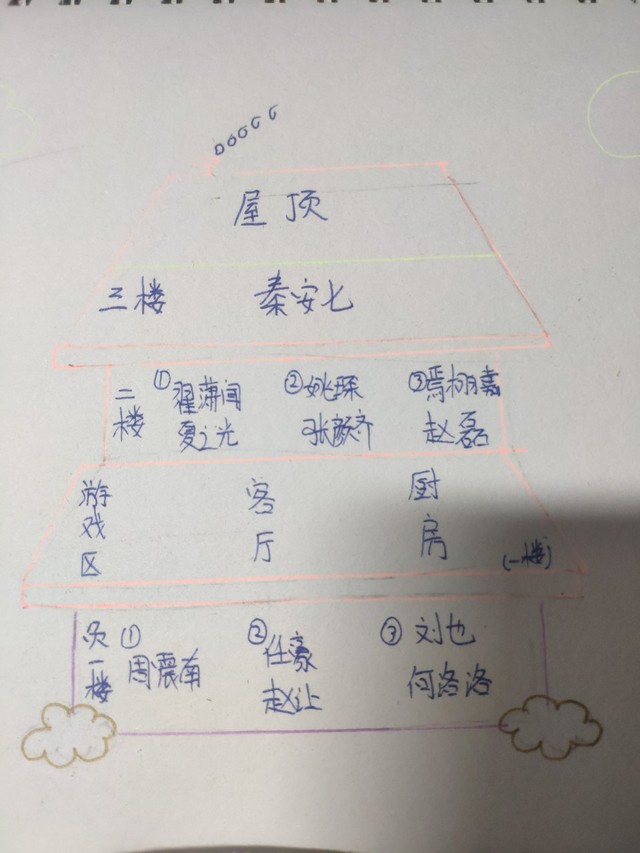 屋顶
三楼 秦安七
二楼 ①翟潇闻 夏之光 ②姚琛 张颜齐 ③焉栩嘉 赵磊
游戏区 客厅 厨房 (一楼)
负一楼 ①周震南 ②任豪 赵让 ③刘也 何洛洛